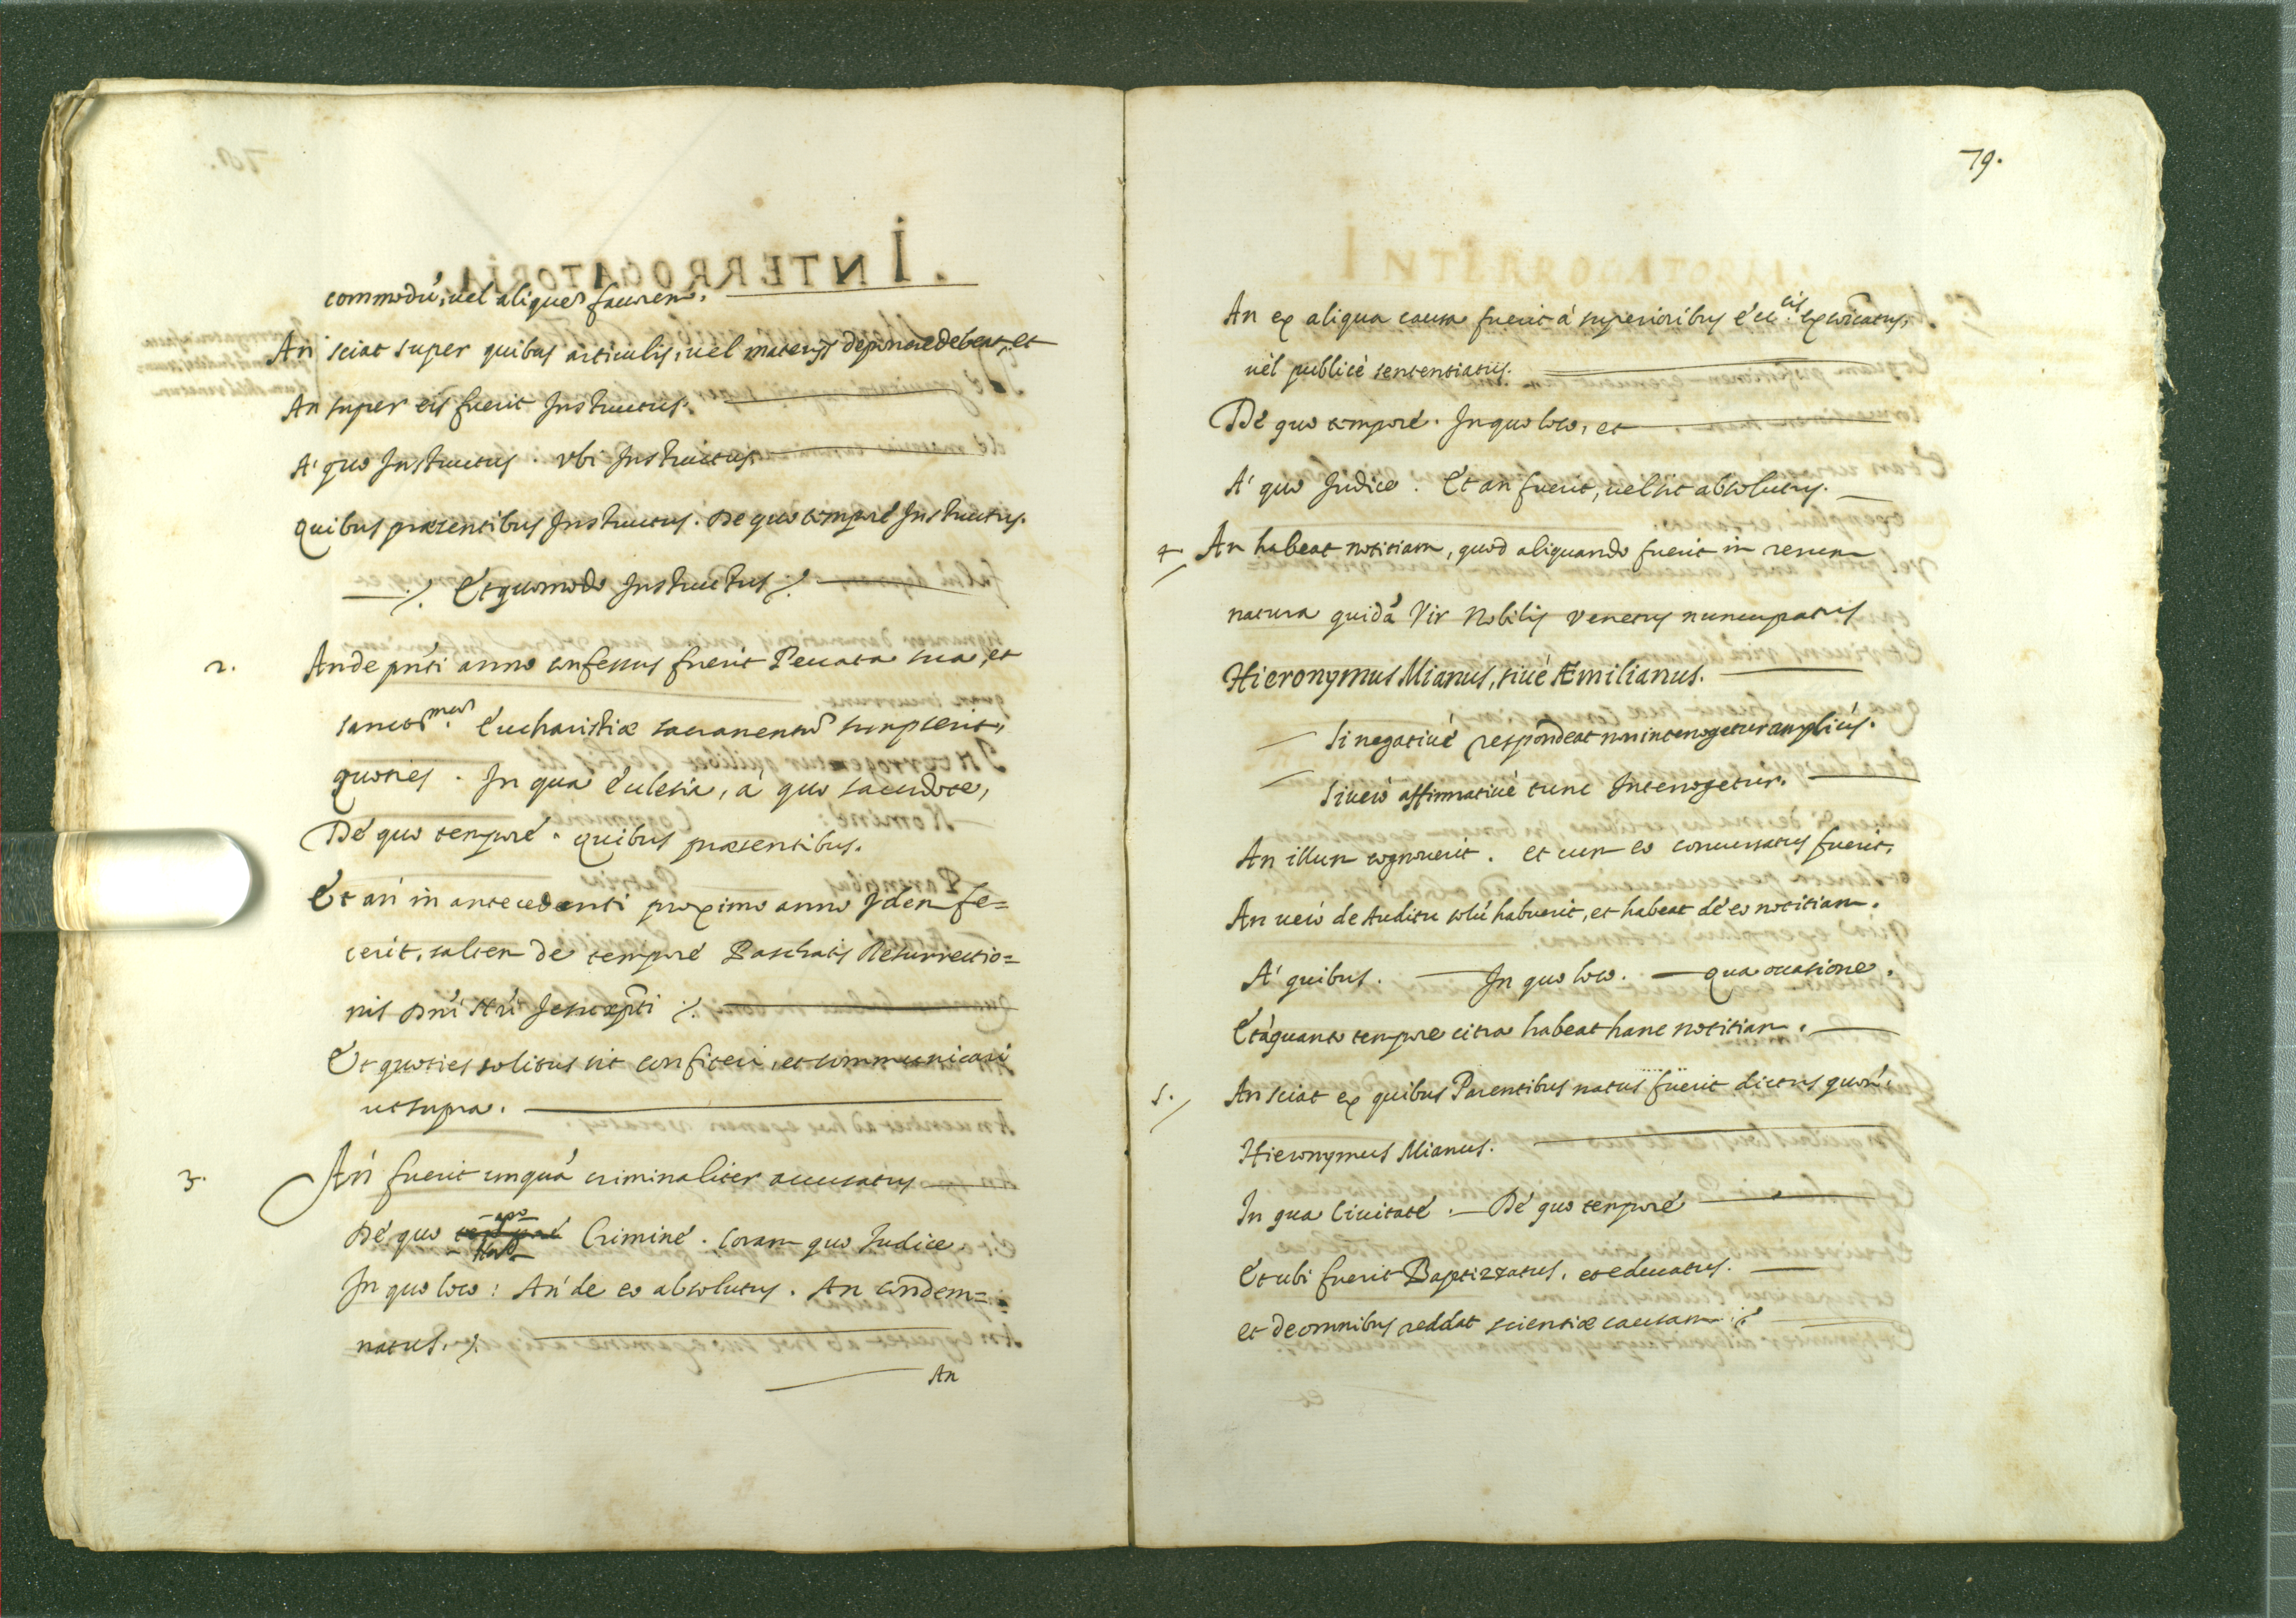 commodũ, uel aliquem fauorem.
An sciat super quibus articulis, uel materijs deponere debeat, et
An super eis fuerit Instructus.
A' quo Instructus. vbi Instructus.
Quibus præsentibus Instructus. De quo tempore Instructus.
Et quomodo Instructus
2. An de pñti anno confessus fuerit Peccata sua, et
sanctmum. Eucharistiæ sacramentũ sumpserit,
quoties. In qua Ecclesia, à quo sacerdote,
Dè quo temporè. quibus præsentibus.
Et an in antecedenti proximo anno Idem fe=
cerit, saltem de temporè Paschatis Resurrectio=
nis Dñi Nri Jesuxpti
Et quoties solitus sit confiteri, et communicari
ut supra.
3. An fuerit unquã criminaliter accusatus
Dè quo Criminè. coram quo Iudice.
In quo loco: An de eo absolutus. An condem=
natus.
An
79.
An ex aliqua causa fuerit à superioribus eccl.cis excõicatus,
uèl publicè sententiatus.
Dè quo temporè. In quo loco, et
A' quo Iudice. Et an fuerit, uel sit absolutus.
4. An habeat notitiam, quod aliquando fuerit in rerum
natura quidã Vir Nobilis Venetus nuncupatus
Hieronymus Mianus, siuè Æmilianus.
Si negatiuè respondeat non interrogetur amplius.
Si uerò affirmatiuè tunc Interrogetur.
An illum cognouerit. et cum eo conuersatus fuerit,
An uerò de Auditu solũ habuerit, et habeat dè eo notitiam.
A' quibus. In quo loco. qua occasione.
Et à quanto tempore citra habeat hanc notitiam.
5. An sciat ex quibus Parentibus natus fuerit dictus quon:
Hieronymus Mianus.
In qua Ciuitatè. Dè quo temporè
Et ubi fuerit Baptizzatus, et educatus.
et de omnibus reddat scientiæ causam